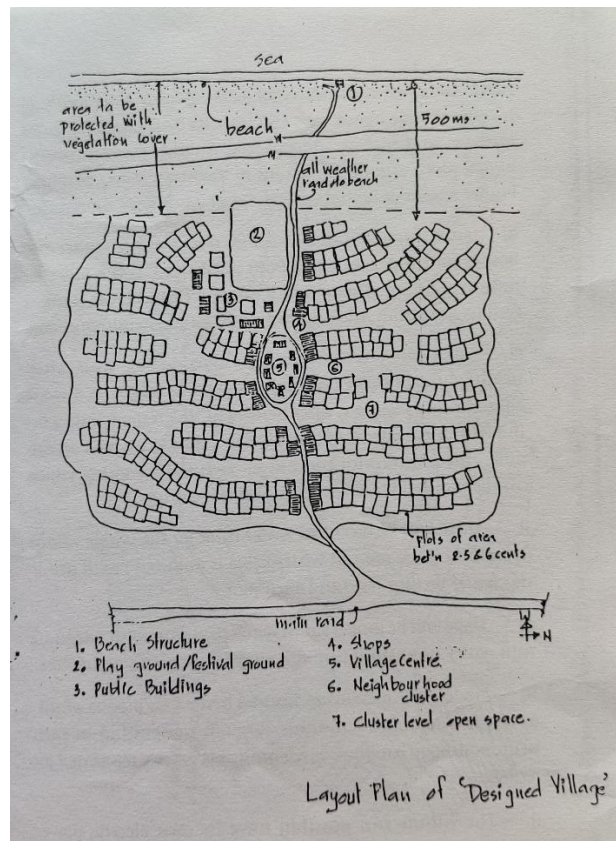 sea
①
area to be
protected with
vegetation cover
beach
500ms.
all weather
road to beach
②
③
④
⑤
⑥
⑦
plots of area
bet'n 2.5 & 6 cents
main road
W
N
1. Beach Structure
2. Play ground/festival ground
3. Public Buildings
4. Shops
5. Village Centre
6. Neighbourhood
cluster
7. Cluster level open space.
Layout Plan of 'Designed Village'